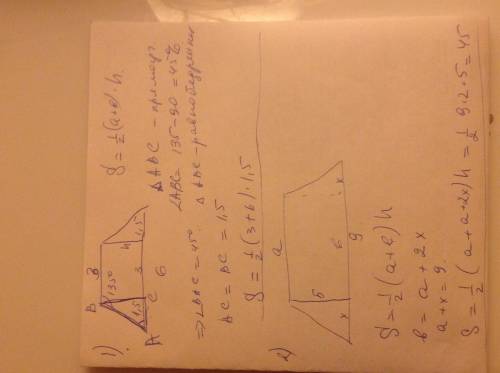 1)
B 3
135°
1,5 3 h 1,5
A C 6
S = 1/2 (a+b)·h.
△ABC – прямоуг.
∠ABC = 135 – 90 = 45°
⇒ ∠BAC = 45° △ABC – равнобедренный
AC = BC = 1,5
S = 1/2 (3+6)·1,5
2)
a
5
x 6 x
9
S = 1/2 (a+b) h
b = a + 2x
a + x = 9
S = 1/2 (a + a + 2x) h = 1/2 9·2·5 = 45